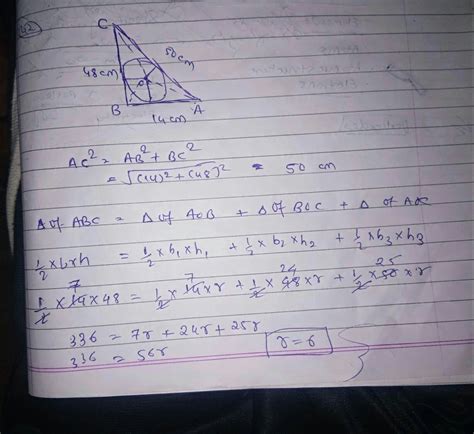 42
C
50 cm
48 cm
O
B
A
14 cm
AC² = AB² + BC²
= √(14)² + (48)² = 50 cm
Δ of ABC = Δ of AOB + Δ of BOC + Δ of AOC
1/2 × b × h = 1/2 × b₁ × h₁ + 1/2 × b₂ × h₂ + 1/2 × b₃ × h₃
7 7 24 25
1/2 × 14 × 48 = 1/2 × 14 × r + 1/2 × 48 × r + 1/2 × 50 × r
336 = 7r + 24r + 25r
336 = 56r
r = 6